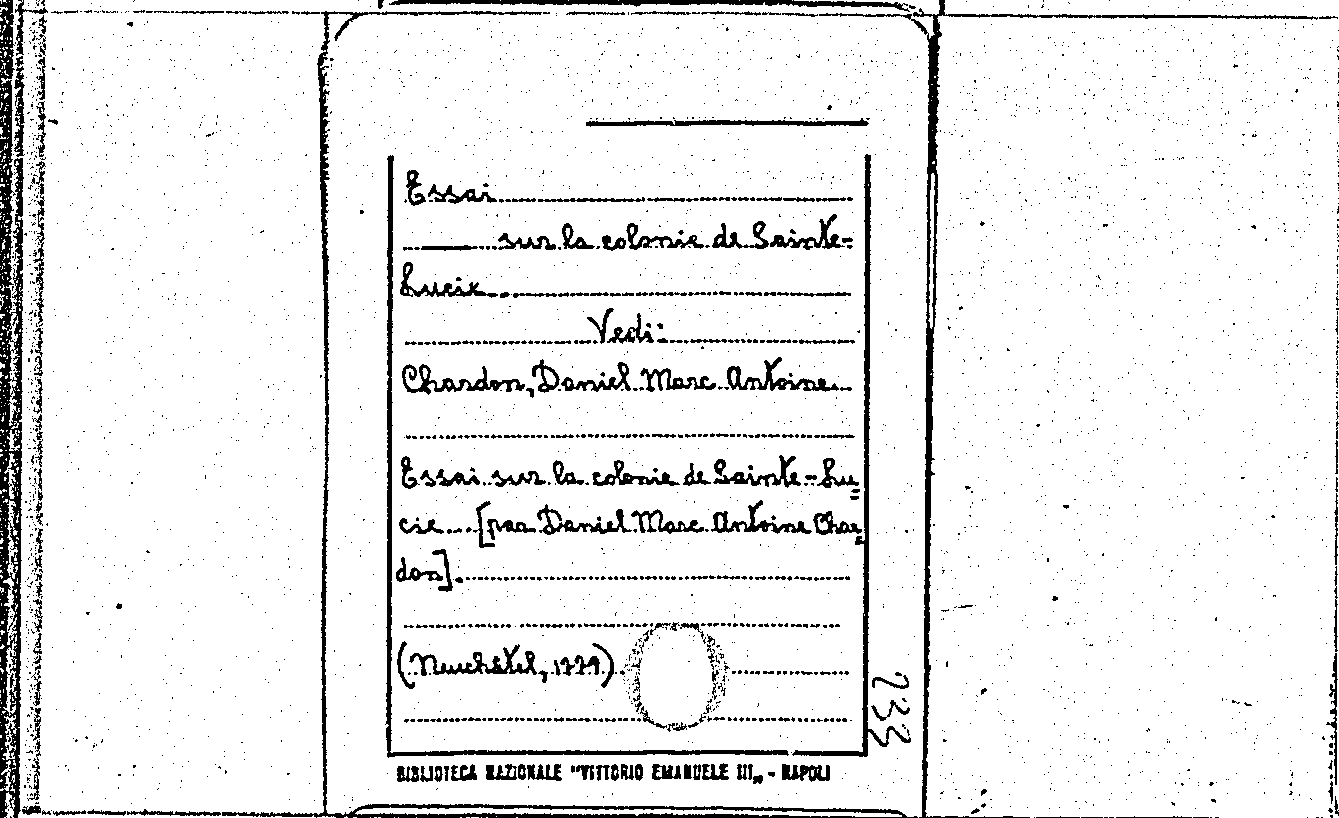 Essai
sur la colonie de Sainte-
Lucie...
Vedi:
Chardon, Daniel Marc Antoine
Essai sur la colonie de Sainte-Lu=
cie... [par Daniel Marc Antoine Char=
don].
(Neuchâtel, 1779)
233
BIBLIOTECA NAZIONALE "VITTORIO EMANUELE III„ - NAPOLI